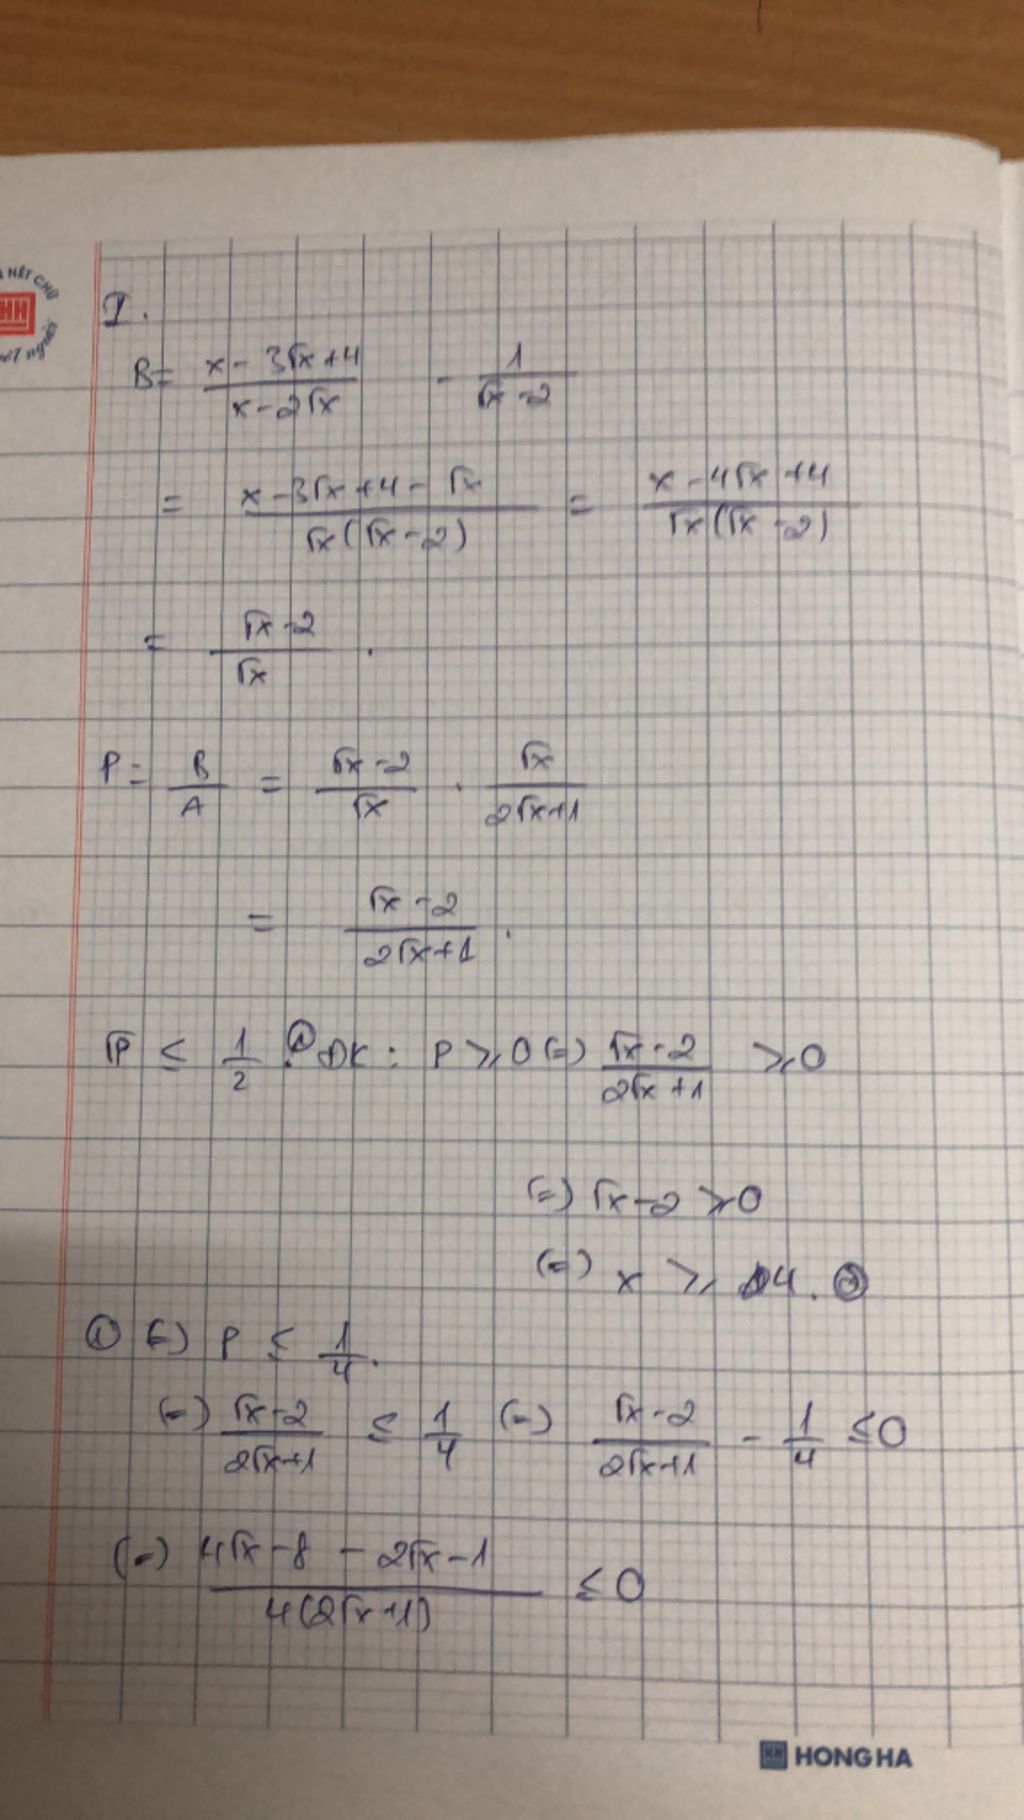 NÉT CHỮ
HH
NẾT người
I.
B = \frac{x - 3\sqrt{x} + 4}{x - 2\sqrt{x}} - \frac{1}{\sqrt{x} - 2}
= \frac{x - 3\sqrt{x} + 4 - \sqrt{x}}{\sqrt{x}(\sqrt{x} - 2)} = \frac{x - 4\sqrt{x} + 4}{\sqrt{x}(\sqrt{x} - 2)}
= \frac{\sqrt{x} - 2}{\sqrt{x}}.
P = \frac{B}{A} = \frac{\sqrt{x} - 2}{\sqrt{x}} . \frac{\sqrt{x}}{2\sqrt{x} + 1}
= \frac{\sqrt{x} - 2}{2\sqrt{x} + 1}.
\sqrt{P} ≤ \frac{1}{2}. ① ĐK: P ≥ 0 (=) \frac{\sqrt{x} - 2}{2\sqrt{x} + 1} ≥ 0
(=) \sqrt{x} - 2 ≥ 0
(=) x ≥ 4. ②
① (=) P ≤ \frac{1}{4}.
(=) \frac{\sqrt{x} - 2}{2\sqrt{x} + 1} ≤ \frac{1}{4} (=) \frac{\sqrt{x} - 2}{2\sqrt{x} + 1} - \frac{1}{4} ≤ 0
(=) \frac{4\sqrt{x} - 8 - 2\sqrt{x} - 1}{4(2\sqrt{x} + 1)} ≤ 0
HH HONG HA